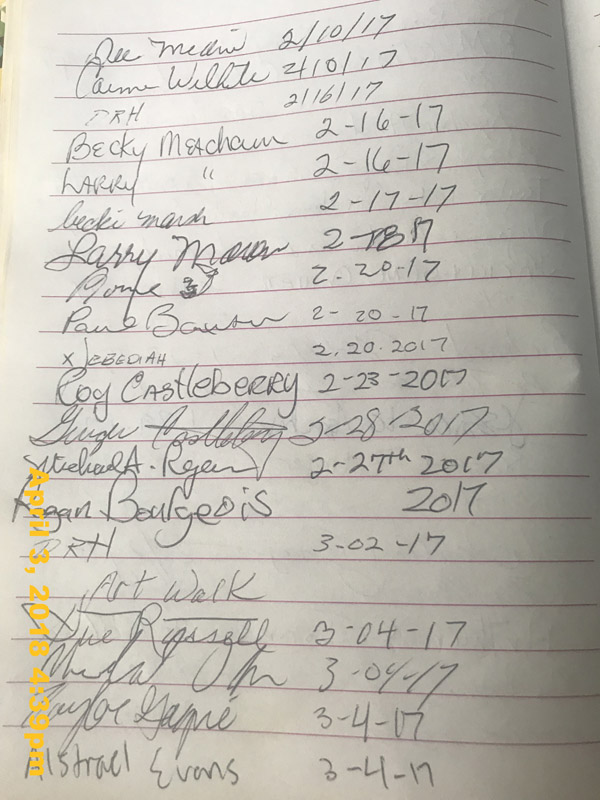 Dee Medin 2/10/17
Wilhite 2/10/17
DRH 2/16/17
BECKY MEACHAM 2-16-17
LARRY " 2-16-17
becki marsh 2-17-17
Larry 2-18 17
2.20-17
Paul 2-20-17
x JEBEDIAH 2.20.2017
Roy CASTLEBERRY 2-23-2017
Ginger Castleberry 2-28 2017
Michael A. Regan 2-27th 2017
Regan Bourgeois 2017
DRH 3-02-17
Art Walk
Sue Russell 3-04-17
3-04-17
Taylor 3-4-17
Alstrael Evans 3-4-17
April 3, 2018 4:39pm